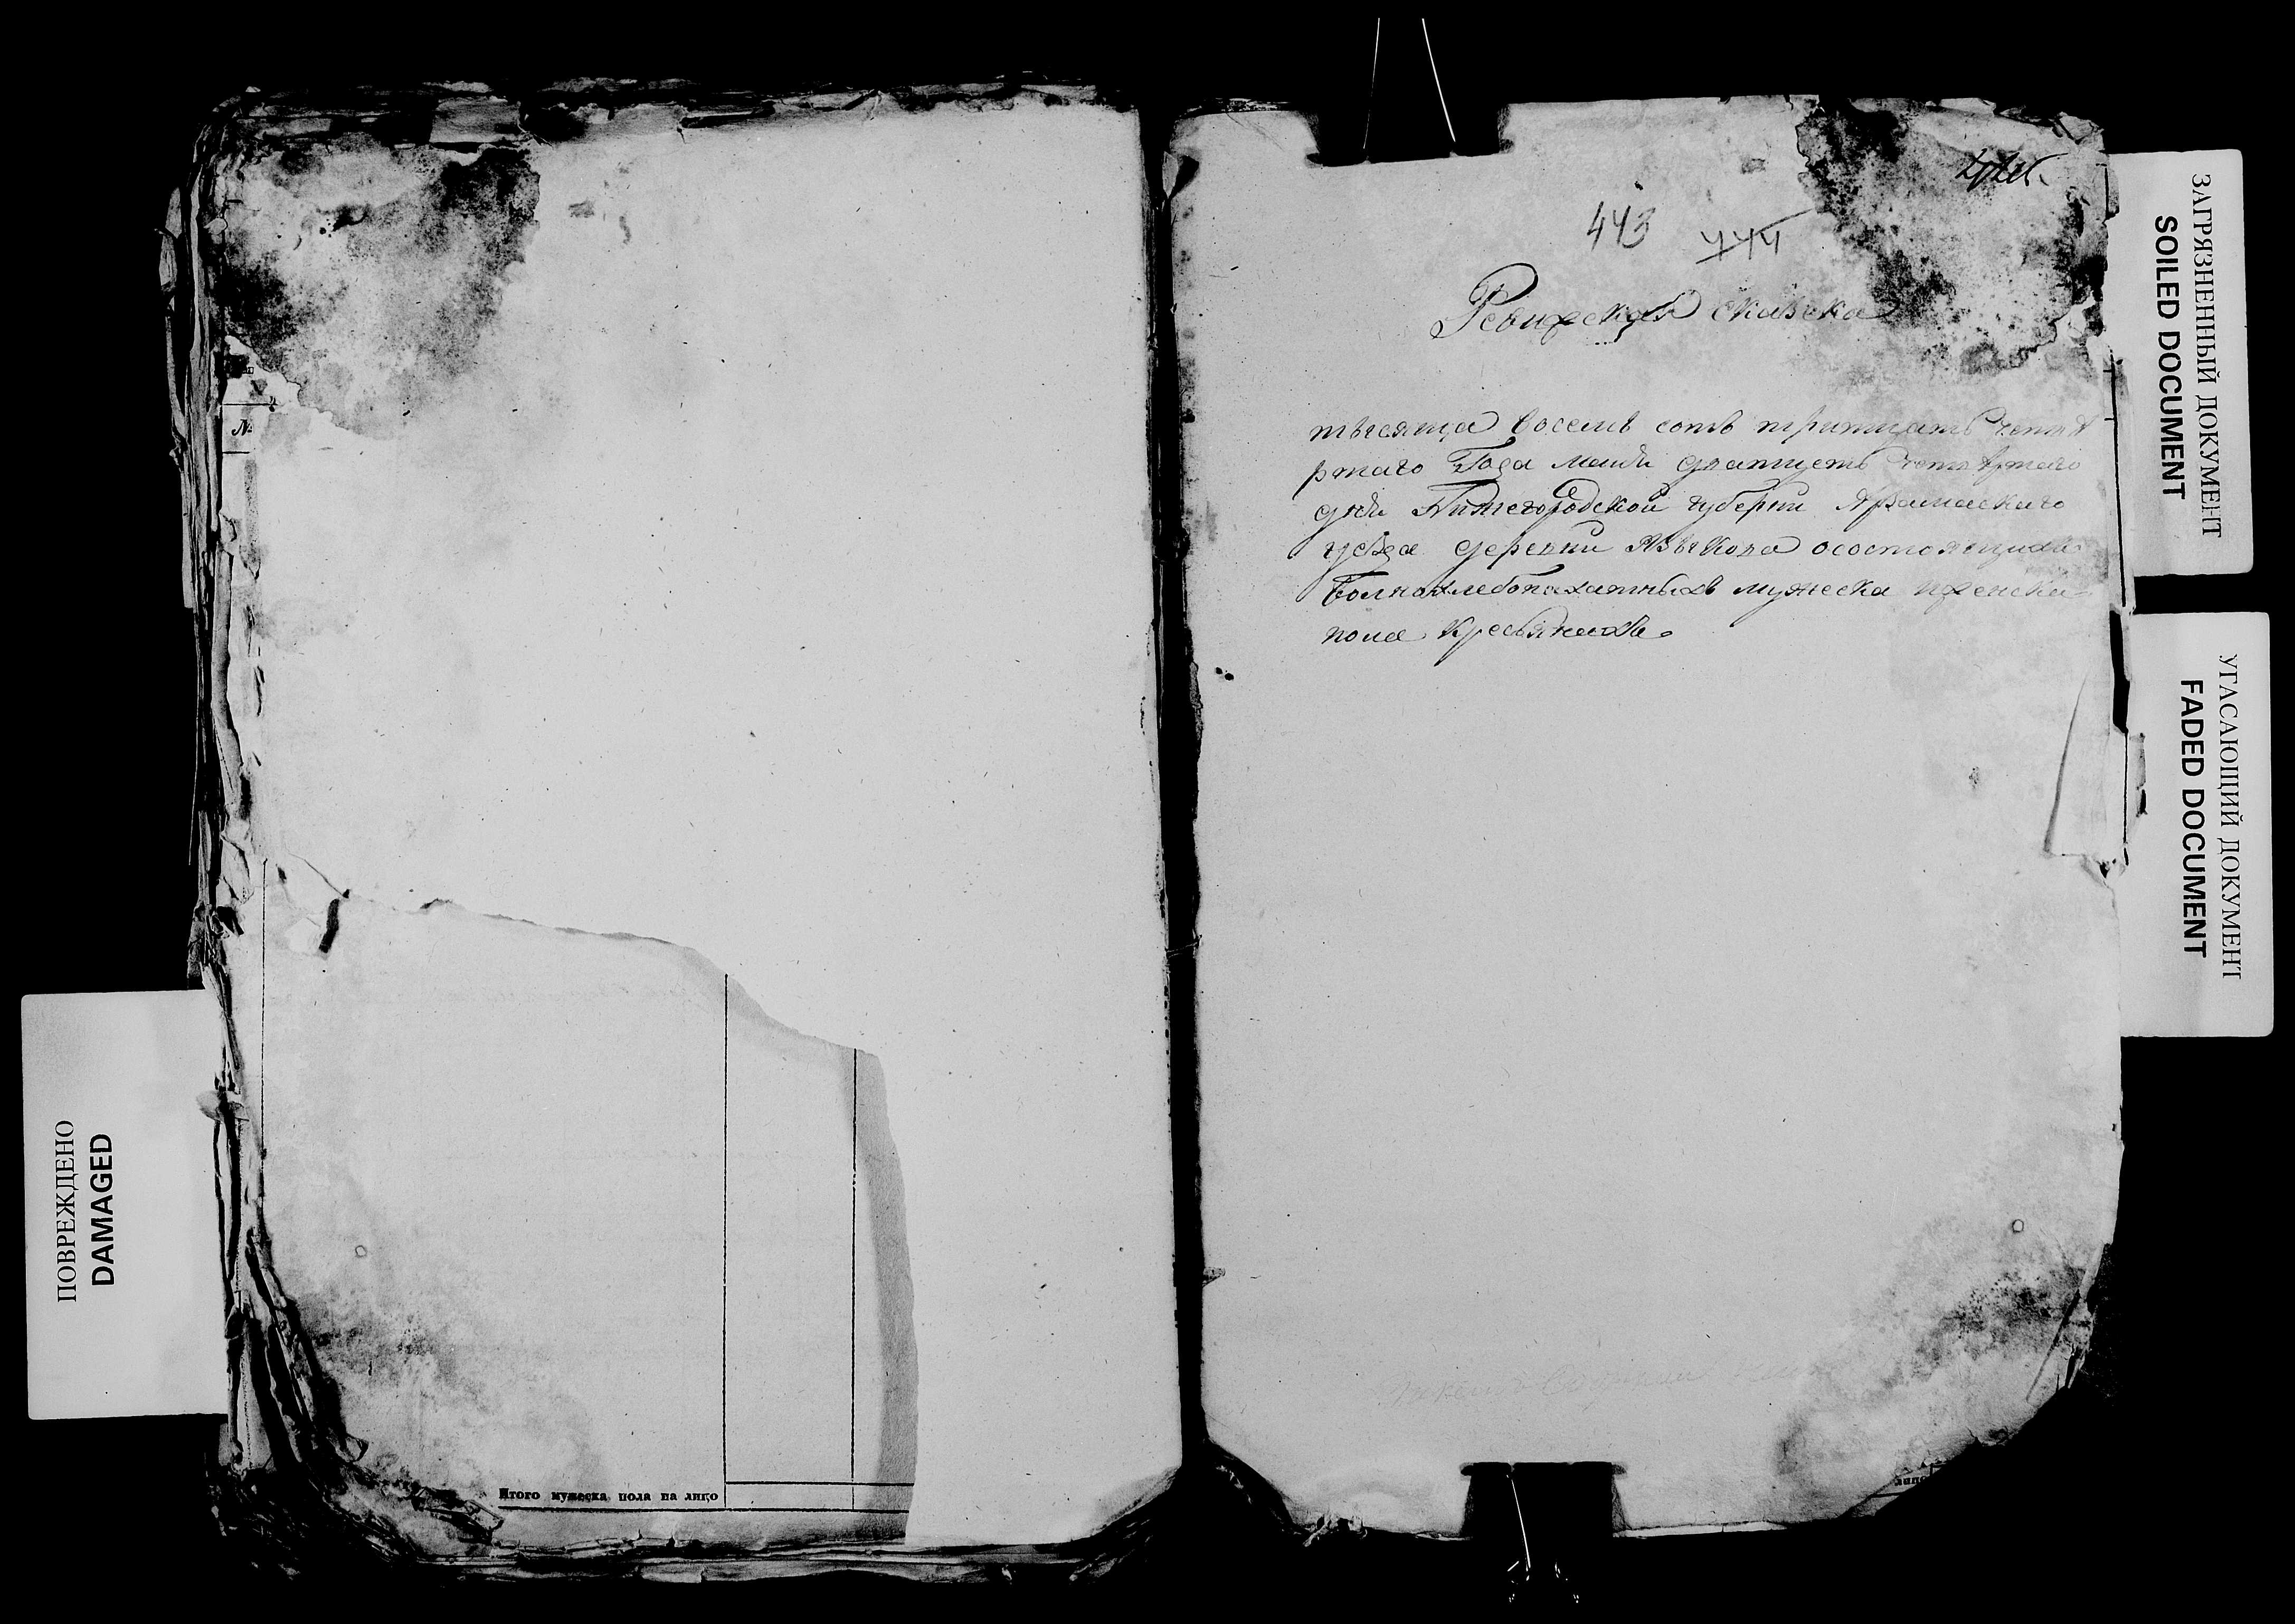 ПОВРЕЖДЕНО
DAMAGED
№
Итого мужеска пола на лицо
443 444
Ревижская сказка
тысяща восемь сотъ тритцать четве
ртаго Года маия дватцеть четвертаго
дня Нижегородской губерни Арзамаскаго
уезда деревни Языкова осостоящихъ
волнохлебопахатныхъ мужеска ижен­ска
пола крестьянахъ.
ЗАГРЯЗНЕННЫЙ ДОКУМЕНТ
SOILED DOCUMENT
УГАСАЮЩИЙ ДОКУМЕНТ
FADED DOCUMENT